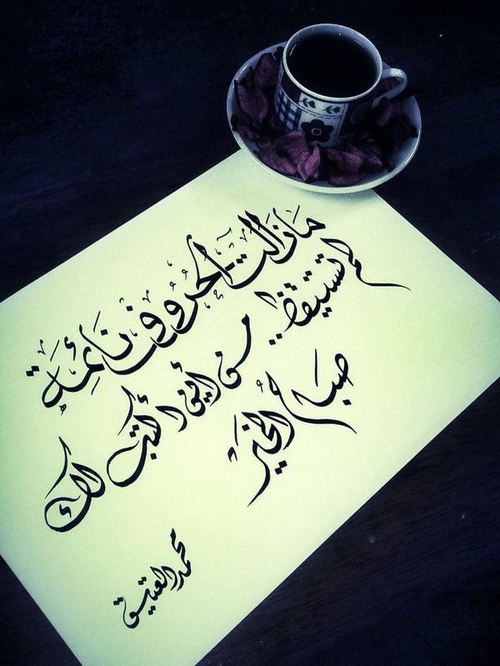 مَازَالت الحُرُوف نَائِمَة
لم تستيقظ..
من أين أكتب لك
صَبَاح الخَيْر
محمد العتيق